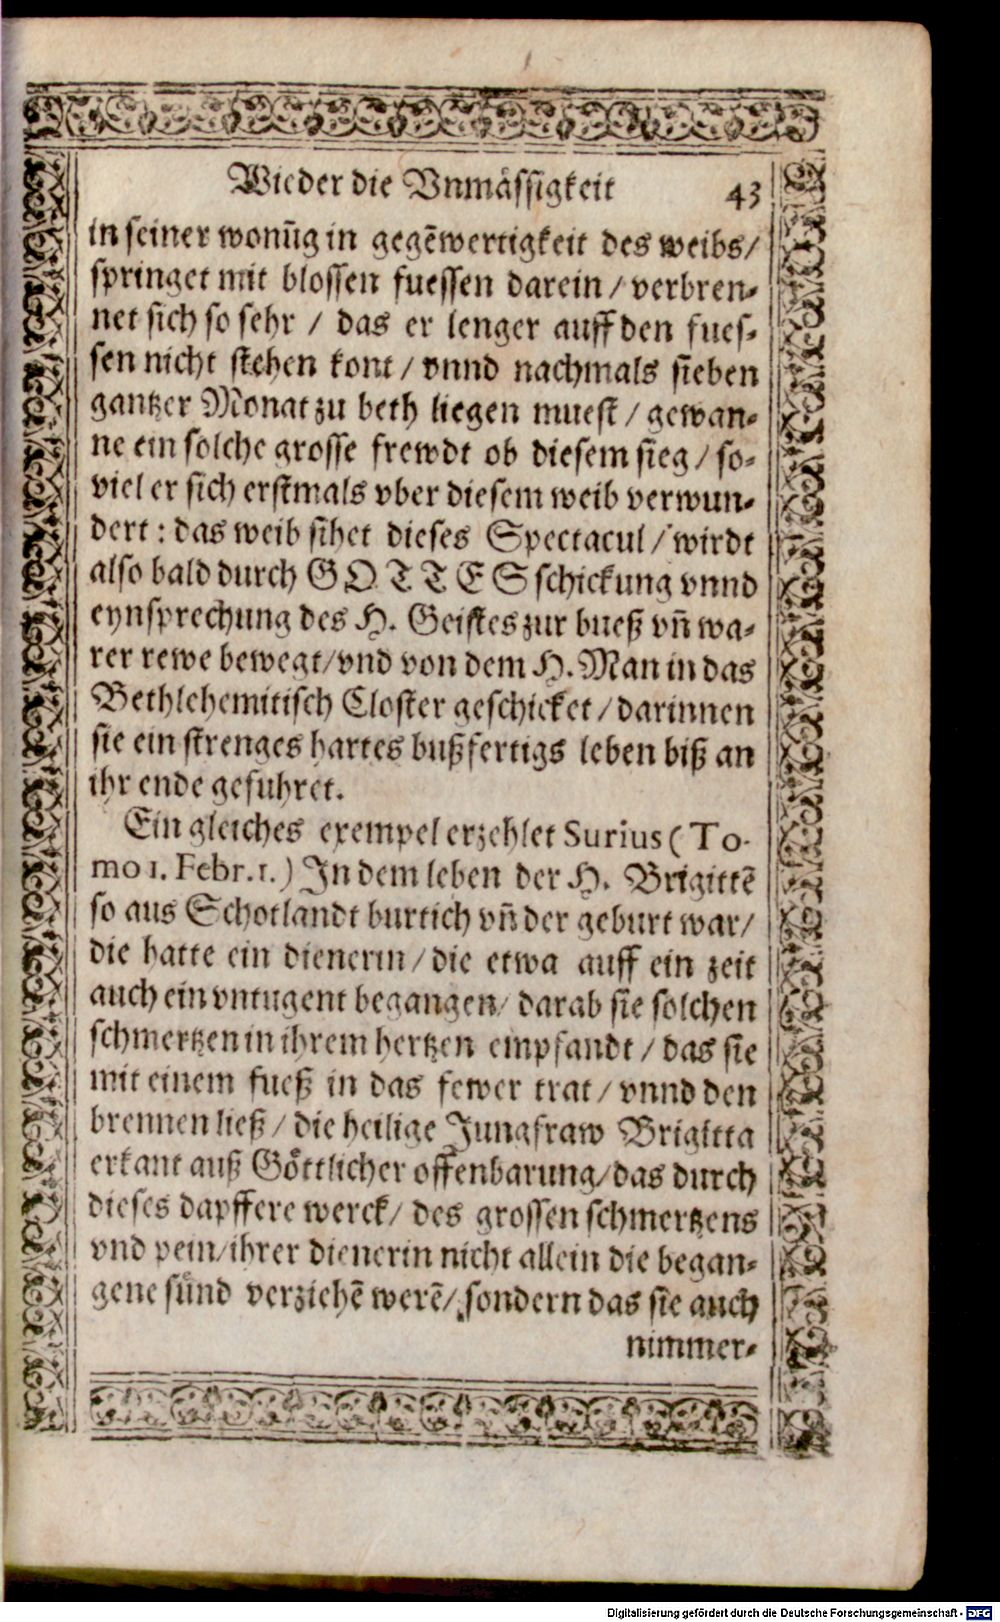 Wieder die Vnmässigkeit 43
in seiner wonũg in gegẽwertigkeit des weibs/
springet mit blossen fuessen darein / verbren-
net sich so sehr / das er lenger auff den fues-
sen nicht stehen kont / vnnd nachmals sieben
gantzer Monat zu beth liegen muest / gewan-
ne ein solche grosse frewdt ob diesem sieg / so-
viel er sich erstmals vber diesem weib verwun-
dert : das weib sihet dieses Spectacul / wirdt
also bald durch GOTTES schickung vnnd
eynsprechung des H. Geistes zur bueß vñ wa-
rer rewe bewegt/vnd von dem H. Man in das
Bethlehemitisch Closter geschicket / darinnen
sie ein strenges hartes bußfertigs leben biß an
ihr ende gefuhret.
Ein gleiches exempel erzehlet Surius ( To-
mo 1. Febr. 1. ) In dem leben der H. Brigittẽ
so aus Schotlandt burtich vñ der geburt war/
die hatte ein dienerin / die etwa auff ein zeit
auch ein vntugent begangen/ darab sie solchen
schmertzen in ihrem hertzen empfandt / das sie
mit einem fueß in das fewer trat / vnnd den
brennen ließ / die heilige Jungfraw Brigitta
erkant auß Göttlicher offenbarung/das durch
dieses dapffere werck/ des grossen schmertzens
vnd pein/ihrer dienerin nicht allein die began-
gene sünd verziehẽ werẽ/ sondern das sie auch
nimmer-
Digitalisierung gefördert durch die Deutsche Forschungsgemeinschaft - DFG